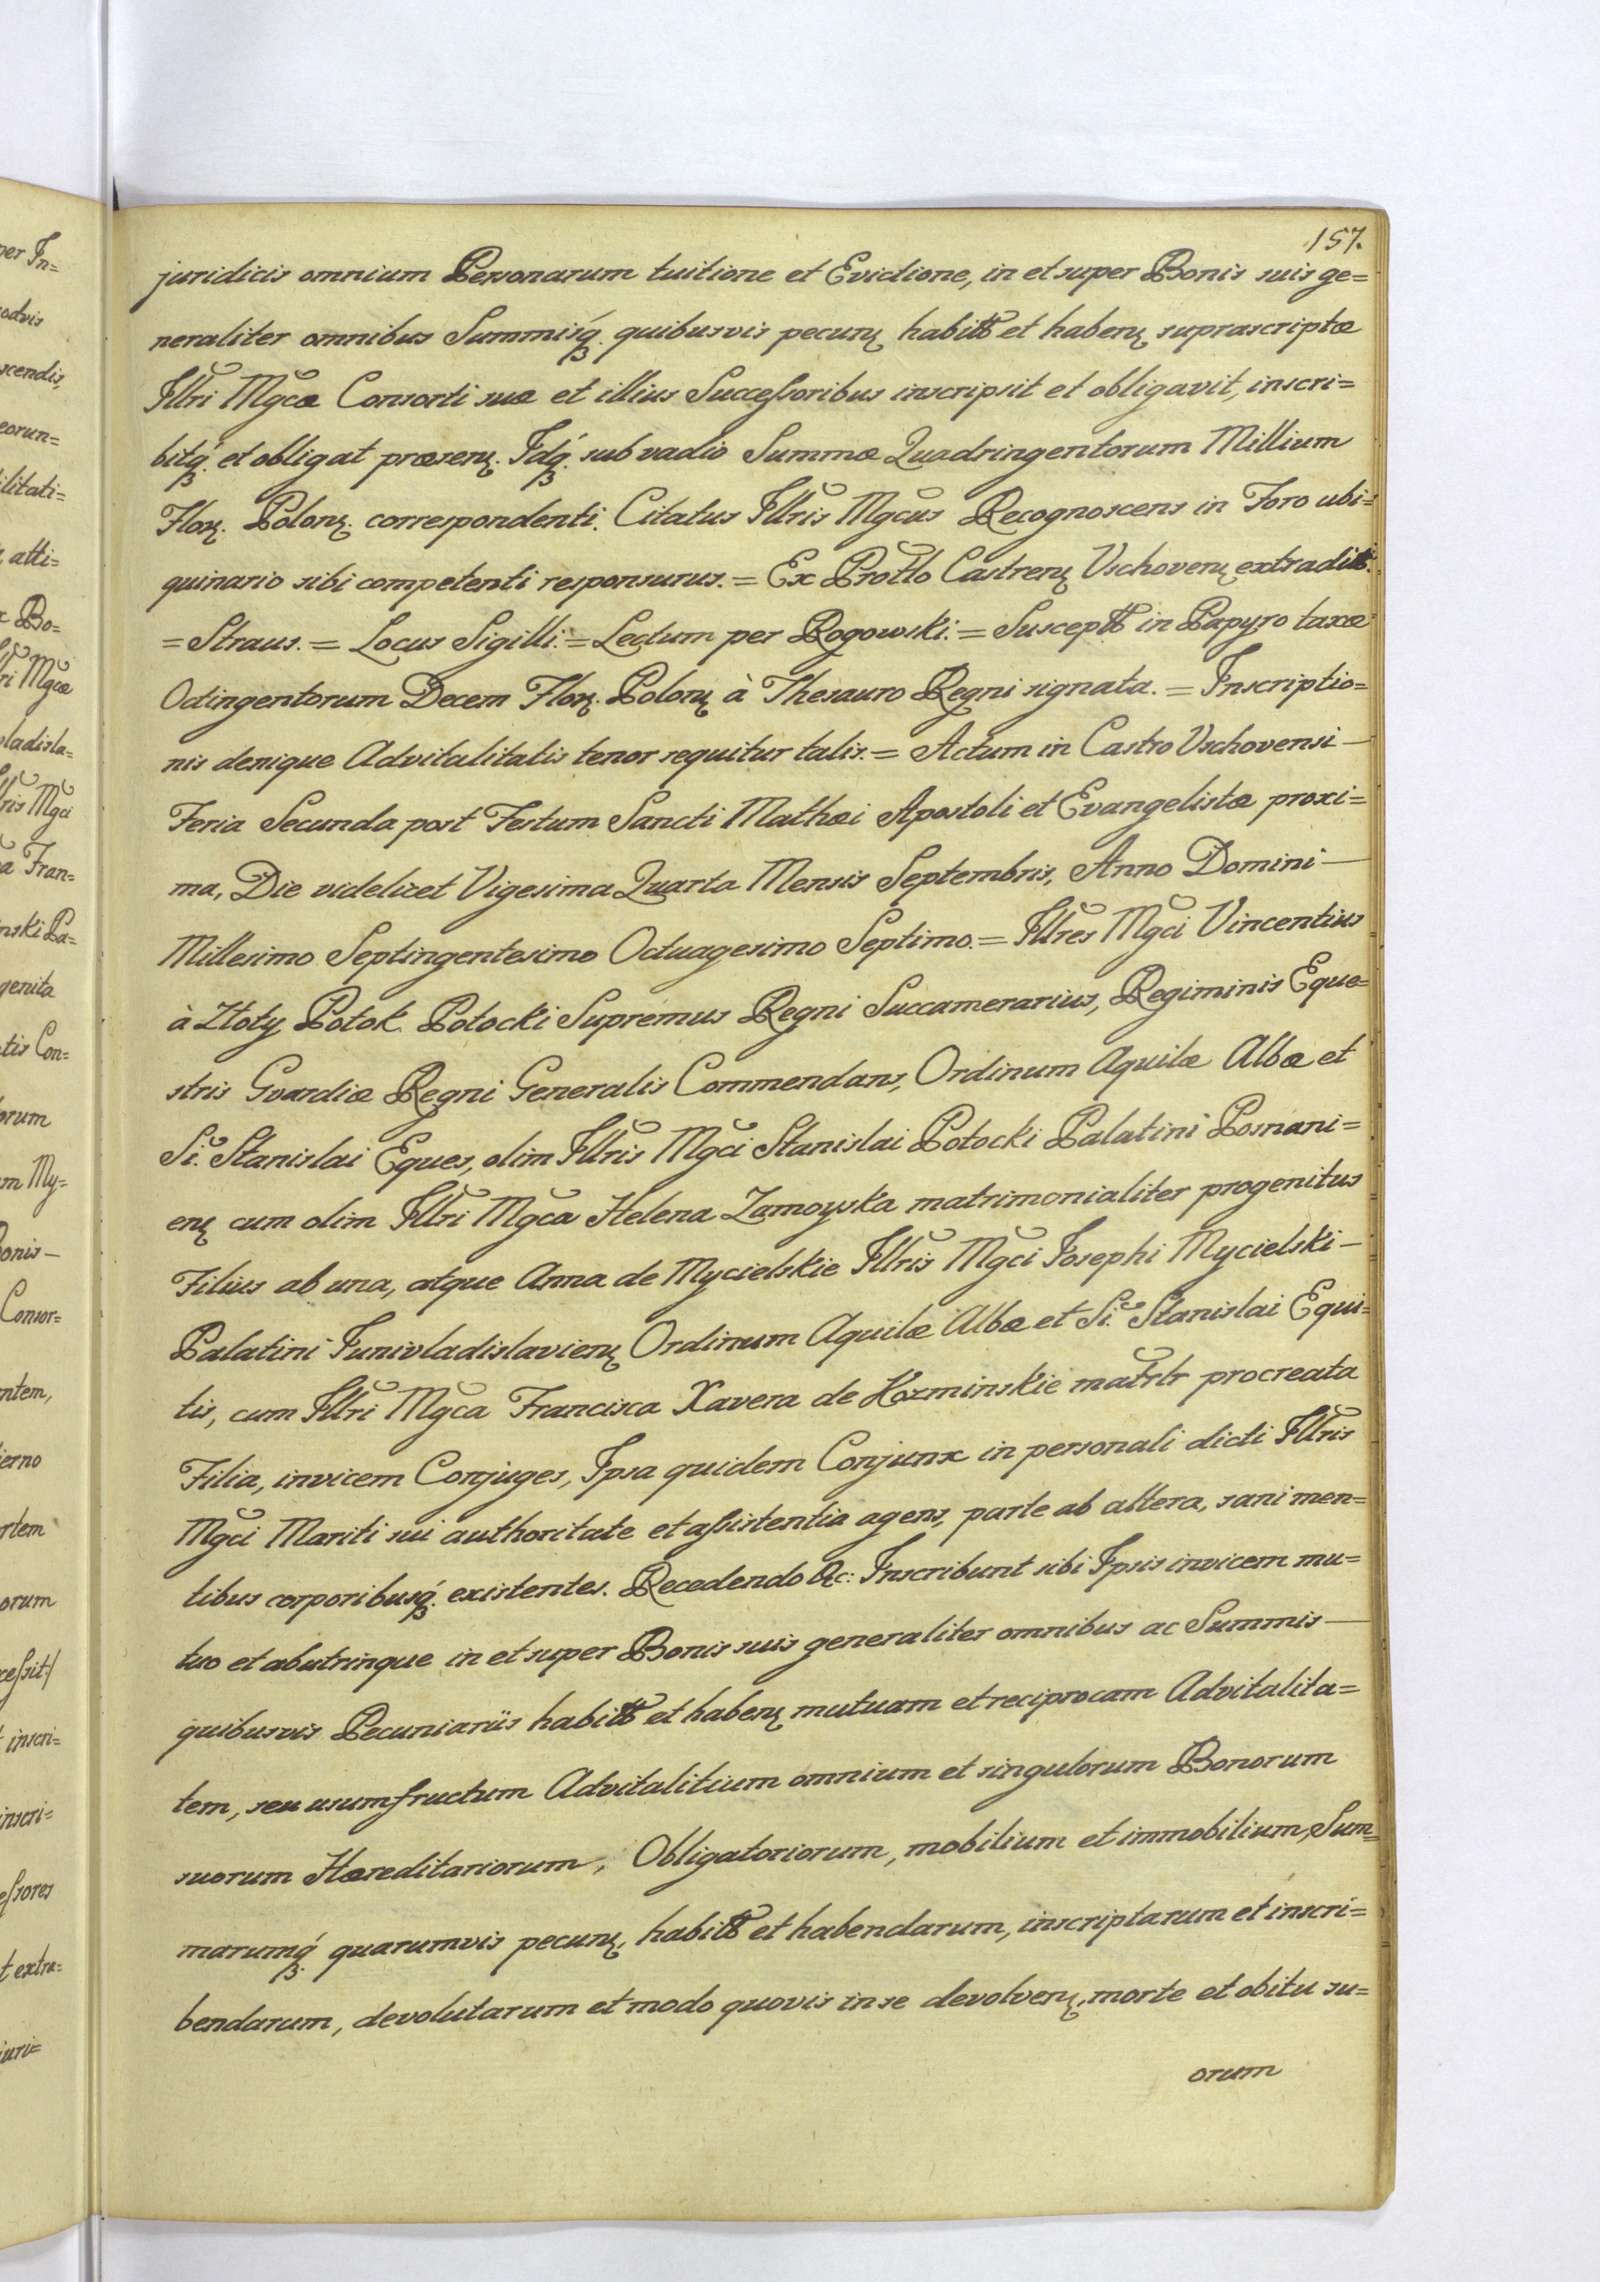 157.
juridicis omnium Personarum tuitione et Evictione, in et super Bonis suis ge=
neraliter omnibus Summisq́ꝫ quibusvis pecunꝝ habitt̃ et habenꝝ suprascriptæ
Jllri Mgcæ Consorti suæ et illius Succeſsoribus inscripsit et obligavit, inscri=
bitq́ꝫ et obligat præsenꝝ. Jdq́ꝫ sub vadio Summæ Quadringentorum Millium
Florꝝ. Polonꝝ. correspondenti. Citatus Jllris Mgcus Recognoscens in Foro ubi=
quinario sibi competenti responsurus. = Ex Protlo Castrenꝝ Vschovenꝝ extraditt.
= Straus. = Locus Sigilli. = Lectum per Rogowski. = Susceptt in Papyro taxæ
Octingentorum Decem Florꝝ. Polonꝝ à Thesauro Regni signata. = Jnscriptio=
nis denique Advitalitatis tenor sequitur talis. = Actum in Castro Vschovensi —
Feria Secunda post Festum Sancti Mathæi Apostoli et Evangelistæ proxi=
ma, Die videlicet Vigesima Quarta Mensis Septembris, Anno Domini —
Millesimo Septingentesimo Octuagesimo Septimo. = Jllres Mgci Vincentius
à Złoty Potok Potocki Supremus Regni Succamerarius, Regiminis Eque=
stris Gvardiæ Regni Generalis Commendans, Ordinum Aquilæ Albæ et
Si. Stanislai Eques, olim Jllris Mgci Stanislai Potocki Palatini Posnani=
enꝝ cum olim Jllri Mgca Helena Zamoyska matrimonialiter progenitus
Filius ab una, atque Anna de Mycielskie Jllris Mgci Josephi Mycielski —
Palatini Junivladislavienꝝ Ordinum Aquilæ Albæ et Si. Stanislai Equi=
tis, cum Jllri Mgca Francisca Xavera de Kozminskie matrlr procreata
Filia, invicem Conjuges, Jpsa quidem Conjunx in personali dicti Jllris
Mgci Mariti sui authoritate et aſsistentia agens, parte ab altera, sani men=
tibus corporibusq́ꝫ existentes. Recedendo &c: Jnscribunt sibi Jpsis invicem mu=
tuo et abutrinque in et super Bonis suis generaliter omnibus ac Summis —
quibusvis Pecuniariis habitt et habenꝝ mutuam et reciprocam Advitalita=
tem, seu usumfructum Advitalitium omnium et singulorum Bonorum
suorum Hæreditariorum, Obligatoriorum, mobilium et immobilium, Sum=
marumq́ꝫ quarumvis pecunꝝ, habitt et habendarum, inscriptarum et inscri=
bendarum, devolutarum et modo quovis in se devolvenꝝ, morte et obitu su=
orum